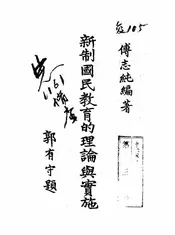 105
傅志純編著
新制國民教育的理論與實施
1161
郭有守題